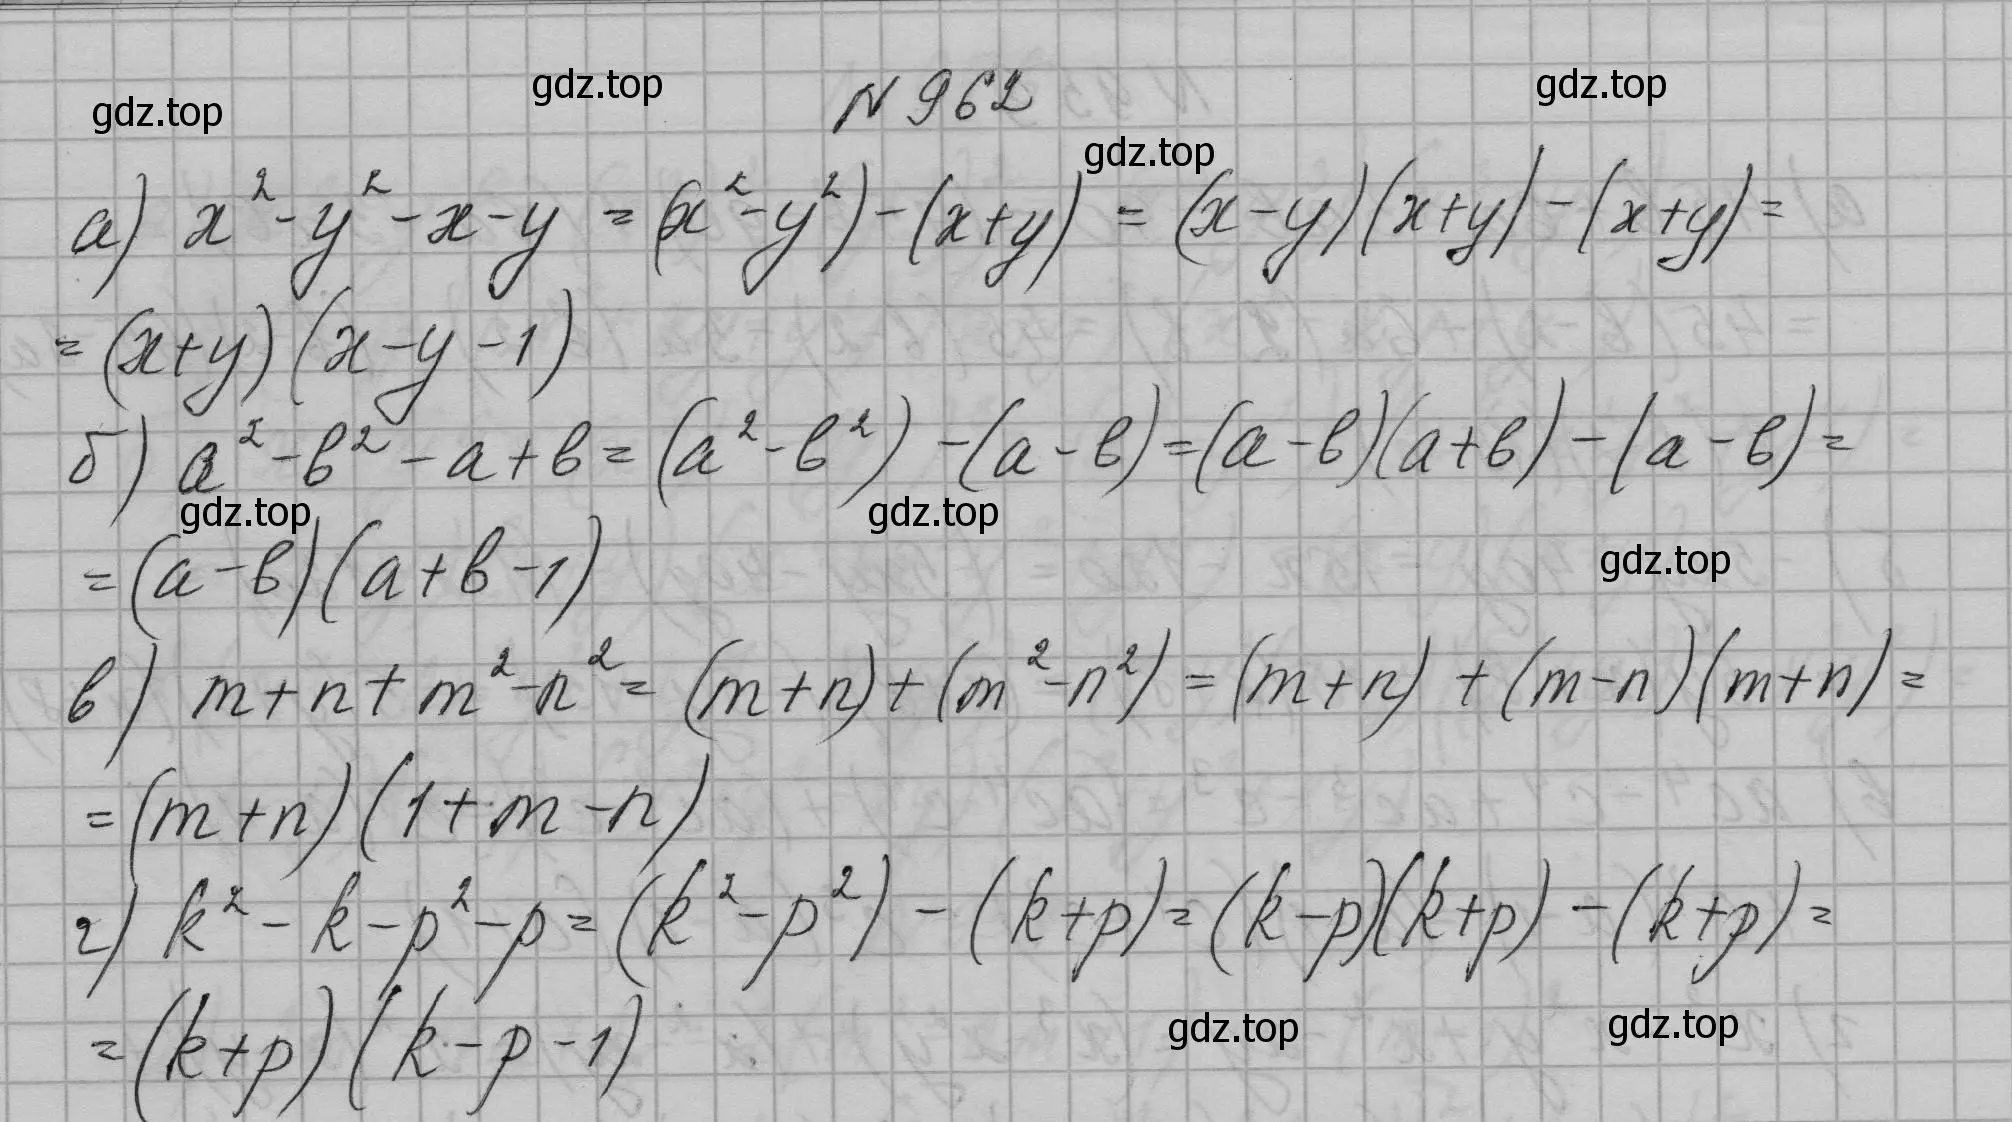 gdz.top gdz.top N 962 gdz.top
gdz.top
а) x² - y² - x - y = (x² - y²) - (x + y) = (x - y)(x + y) - (x + y) =
= (x + y)(x - y - 1)
б) a² - b² - a + b = (a² - b²) - (a - b) = (a - b)(a + b) - (a - b) =
gdz.top gdz.top
= (a - b)(a + b - 1)
gdz.top
в) m + n + m² - n² = (m + n) + (m² - n²) = (m + n) + (m - n)(m + n) =
= (m + n)(1 + m - n)
г) k² - k - p² - p = (k² - p²) - (k + p) = (k - p)(k + p) - (k + p) =
= (k + p)(k - p - 1)
gdz.top gdz.top